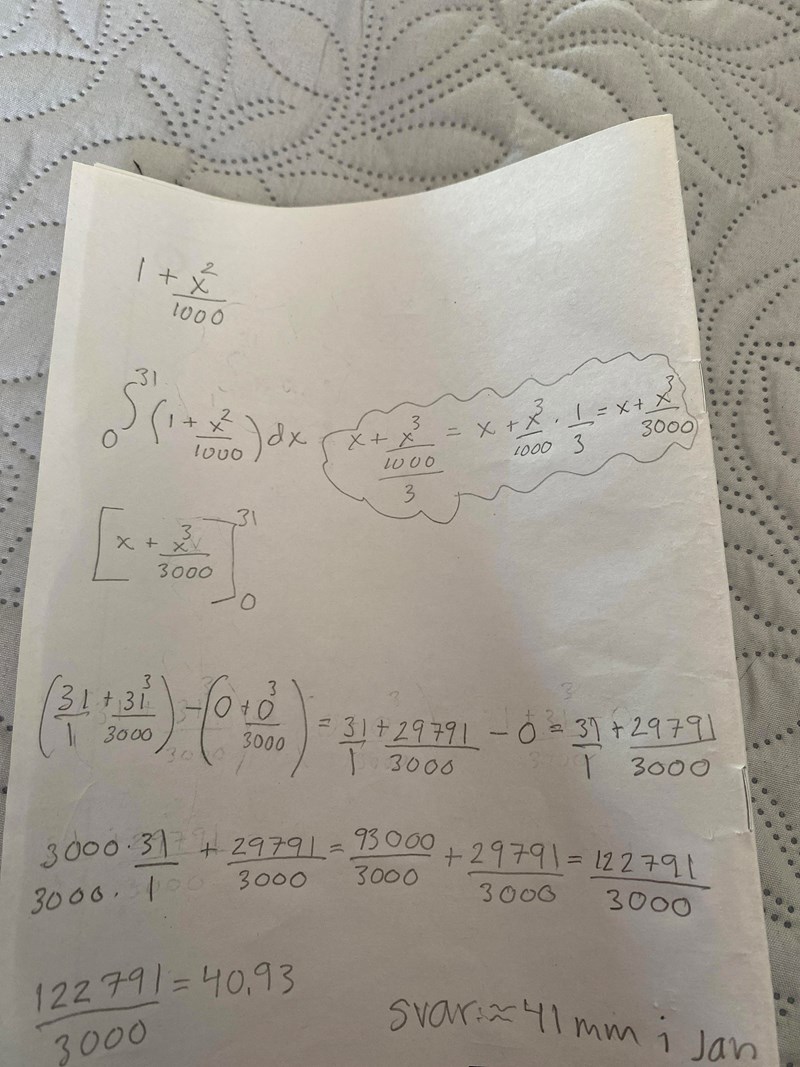 1 + x²/1000
₀∫³¹ (1 + x²/1000) dx
x + x³/1000/3 = x + x³/1000 · 1/3 = x + x³/3000
[x + x³/3000]₀³¹
(31/1 + 31³/3000) - (0 + 0³/3000) = 31/1 + 29791/3000 - 0 = 31/1 + 29791/3000
3000 · 31/3000 · 1 + 29791/3000 = 93000/3000 + 29791/3000 = 122791/3000
122791/3000 = 40,93
svar: ≈ 41 mm i Jan